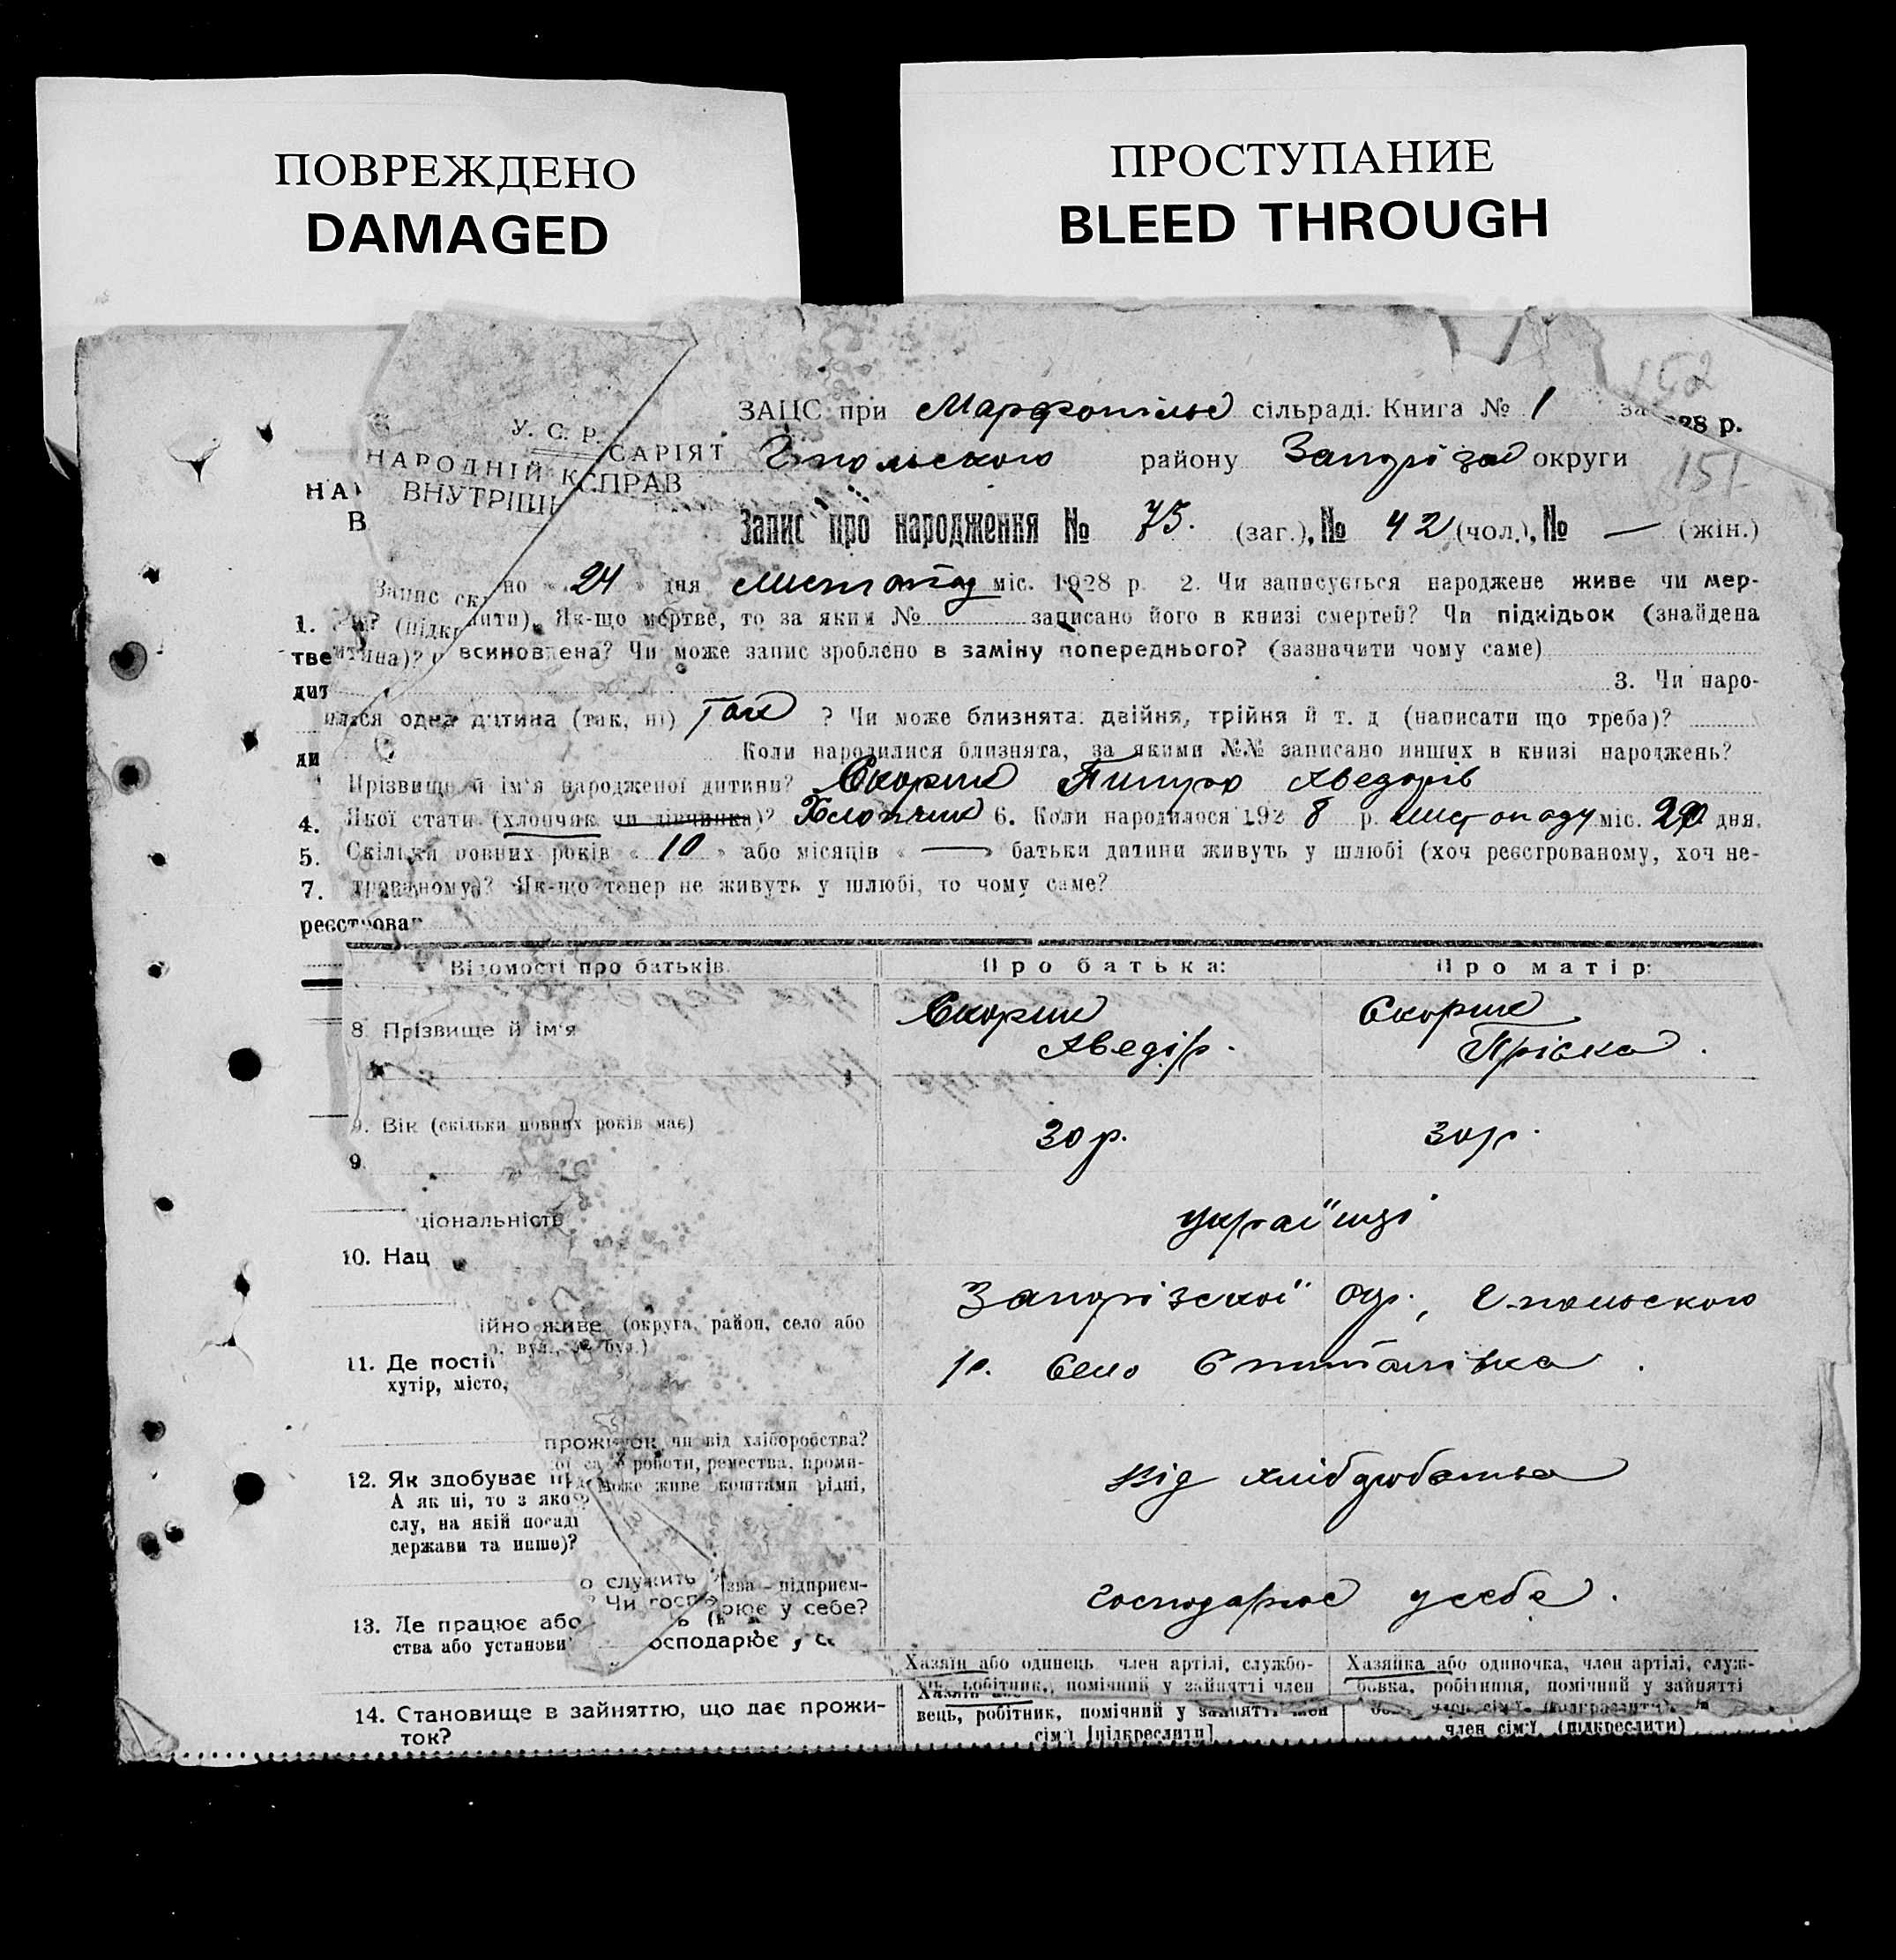 ПОВРЕЖДЕНО
DAMAGED
ПРОСТУПАНИЕ
BLEED THROUGH
152
151
У. С. Р.
НАРОДНІЙ К САРІЯТ
ВНУТРІШ СПРАВ
НА
В
ЗАЦС при сільраді. Книга № 1 за 28 р.
району округи
Запис про народження № 75. (заг.), № 42 (чол.), № — (жін.)
Запис ск но « 24 » дня листопад міс. 1928 р. 2. Чи записується народжене живе чи мер-
1. (підкр ити). Як-що мертве, то за яким № записано його в книзі смертей? Чи підкідьок (знайдена
тве тина)? всиновлена? Чи може запис зроблено в заміну попереднього? (зазначити чому саме)
дит 3. Чи наро-
лися одна дитина (так, ні) так ? Чи може близнята: двійня, трійня й т. д (написати що треба)?
ди Коли народилися близнята, за якими №№ записано инших в книзі народжень?
4. Прізвище й ім'я народженої дитини? Скорик Аведорів
5. Якої стати (хлопчик чи дівчинка)? Хлопчик 6. Коли народилося 192 8 р. листопаду міс. дня.
7. Скільки повних років « 10 » або місяців « — » батьки дитини живуть у шлюбі (хоч реєстрованому, хоч не-
реєстрован трованому)? Як-що тепер не живуть у шлюбі, то чому саме?
Відомості про батьків. Про батька: Про матір:
8. Прізвище й ім'я Скорик Скорик
Аведір. Пріська.
9. Вік (скільки повних років має) 30 р. 30 р.
9.
ціональність українці
10. Нац
Запорізської окр.,
ійно живе (округа, район, село або
р. вул., № буд.)
11. Де пості р. село
хутір, місто,
прожиток, чи від хліборобства?
роботи, ремества, проми-
12. Як здобуває пр може живе коштами рідні, від хліборобства
А як ні, то з яко
слу, на якій посаді
держави та инше)?
о служить зва - підприєм-
Чи госпо рює у себе? господарює у себе.
13. Де працює або
ства або установи осподарює у се
Хазяїн або одинець, член артілі, службо- Хазяйка або одиночка, член артілі, служ-
робітник, помічний у зайнятті член бовка, робітниця, помічний у зайнятті
14. Становище в зайняттю, що дає прожи- вець, робітник, помічний у зайнятт член
ток? сім'ї [підкреслити] член сім'ї (підкреслити)